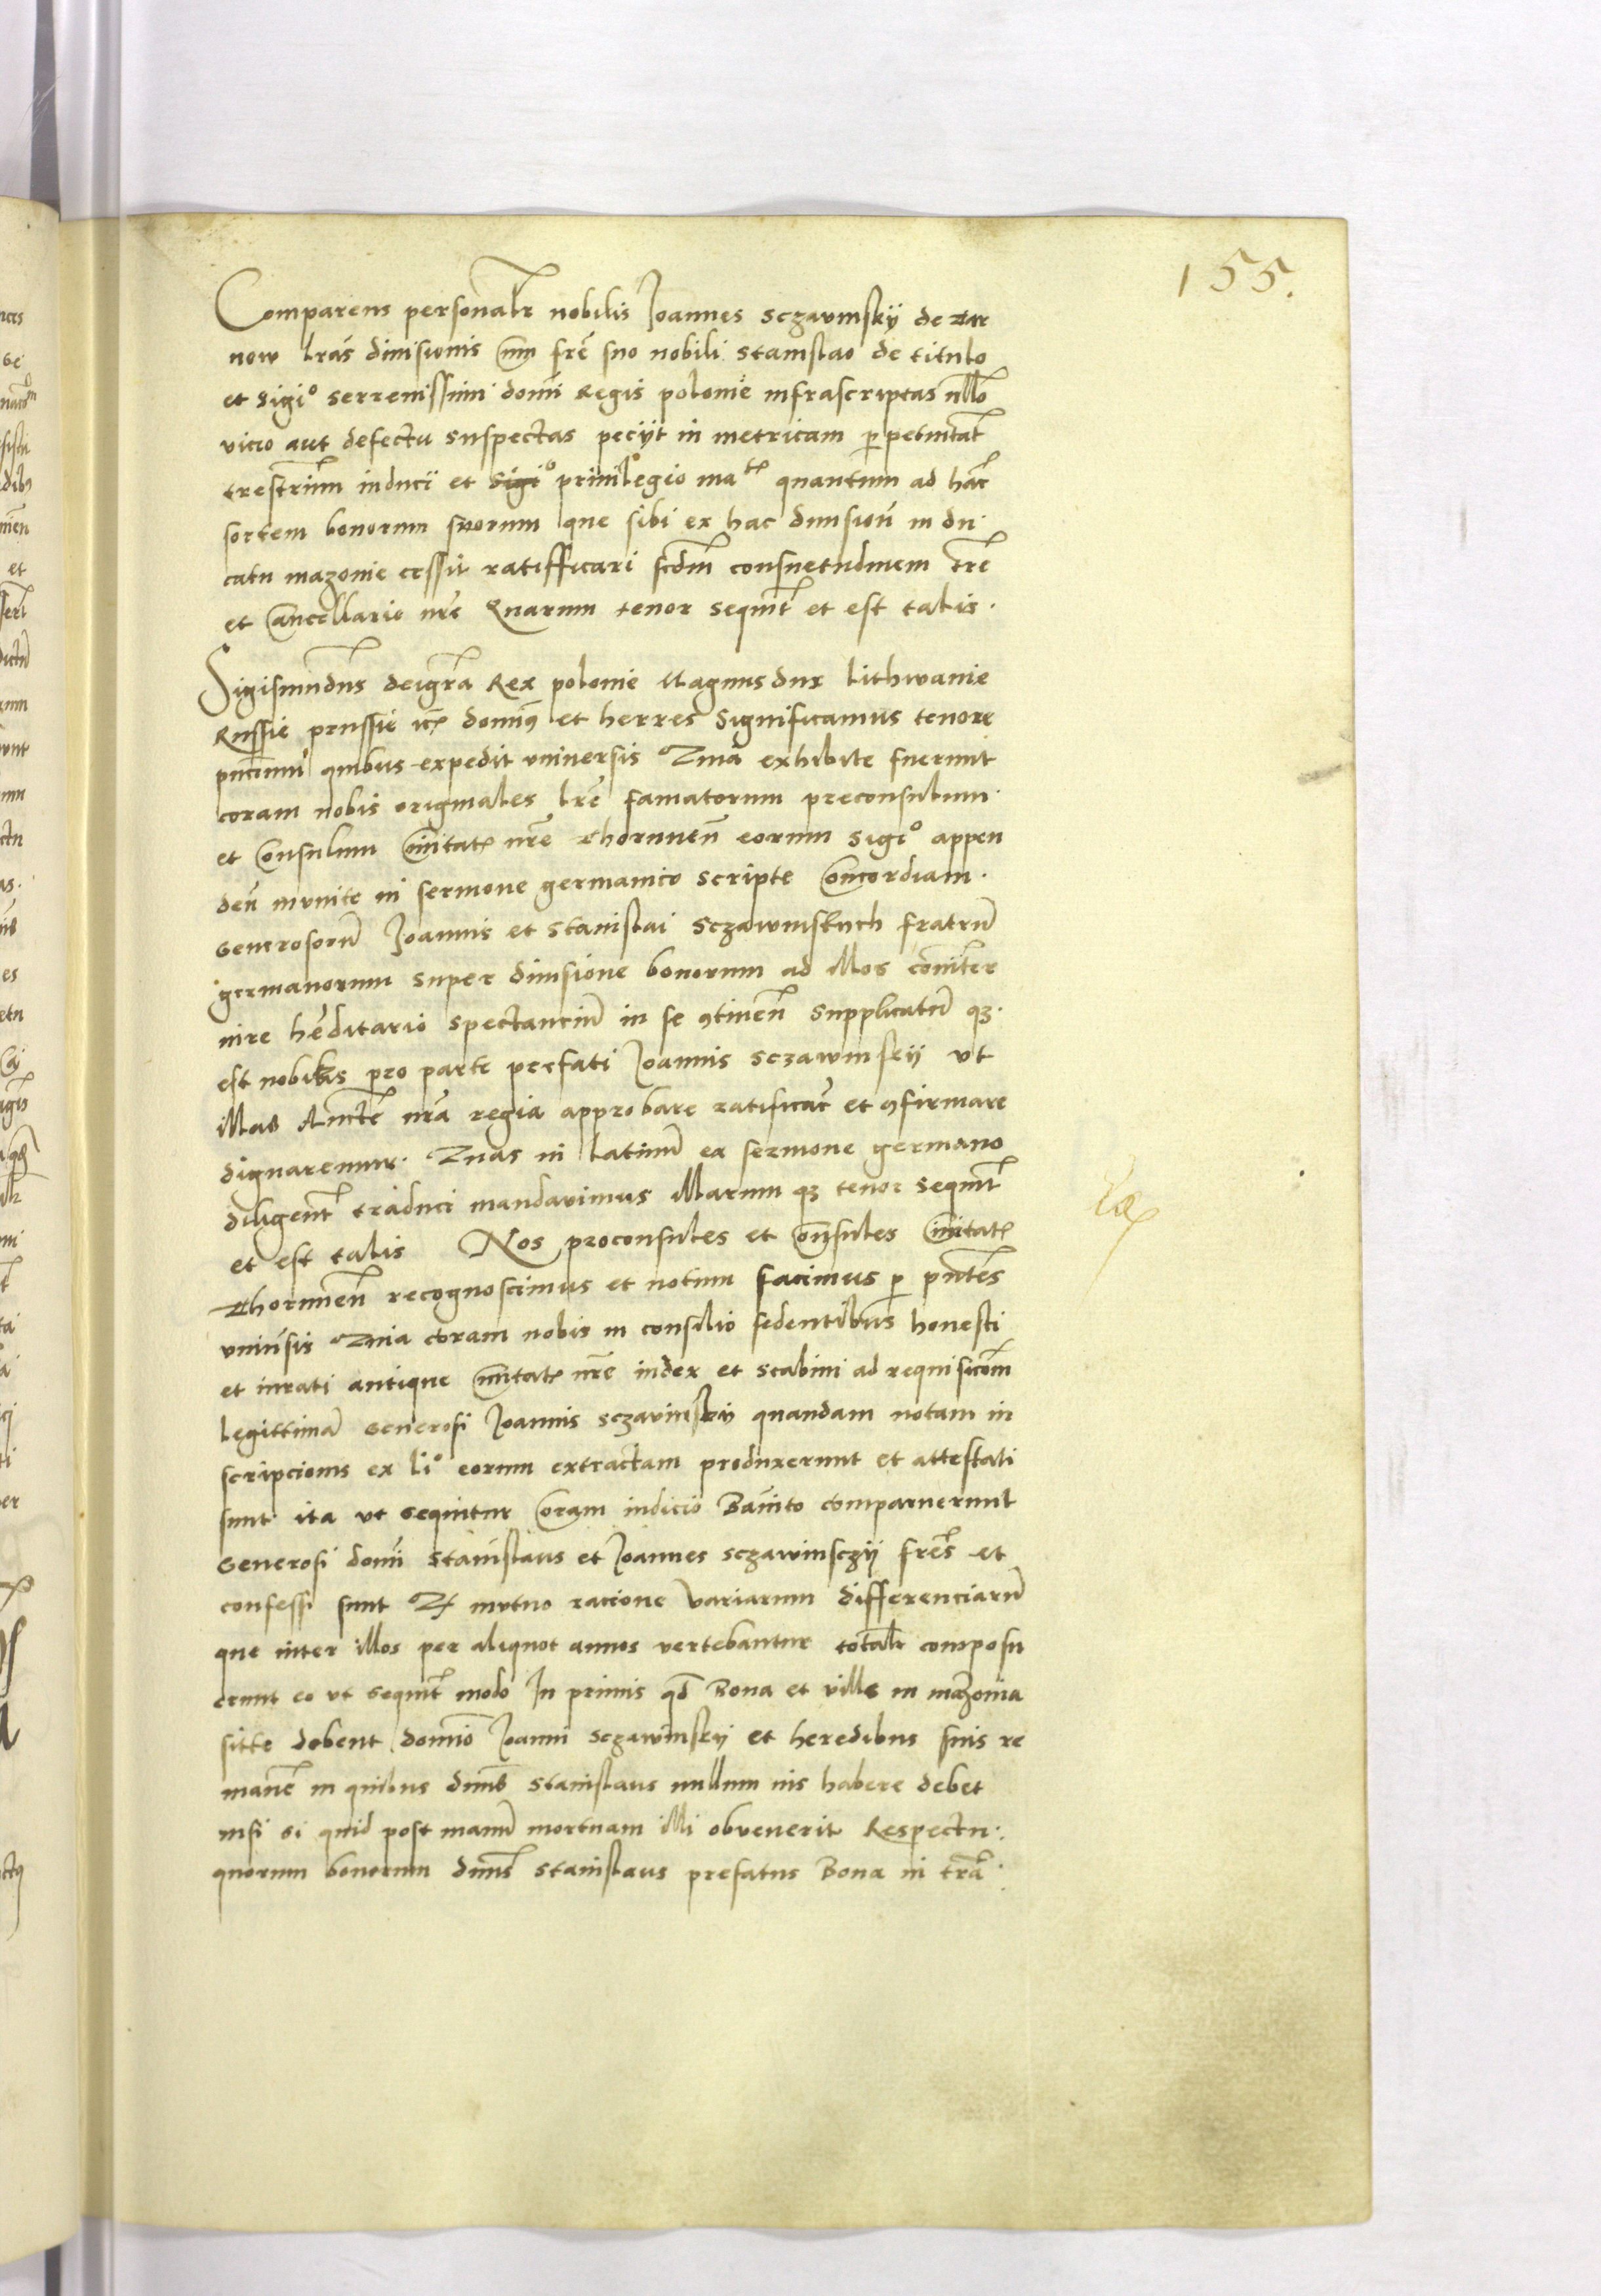 155.
Comparens personalr nobilis Joannes Sczavinskÿ de Zar
now lras divisionis cum fre suo nobili Stanislao de titulo
et sigio Serrenissimi domi Regis polonie infrascriptas nllo
vicio aut defectu suspectas peciÿt in metricam ppetuitat
trestrium inducii et sigio privilegio matis quantum ad hac
sortem bonorum suorum que sibi ex hac divisioe in du
catu mazovie cessit ratifficari scdm consuetudinem tre
et Cancellarie nre Quarum tenor sequit et est talis.
Sigismundus deigra Rex polonie Magnus dux Lithwanie
Russie prussie etc domi9 et herres Significamus tenore
pncium quibus expedit universis Quia exhibite fuerunt
coram nobis originales lre famatorum preconsulum
et Consulum Civitatis nre Thorunen eorum Sigio appen
den munite in sermone germanico scripte Concordiam.
Generosoru Joannis et Stanislai Sczawinskich fratru
germanorum super divisione bonorum ad illos comiter
iure heditario spectanciu in se 9tinen Supplicatu q3
est nobis pro parte prefati Joannis Sczawinskij ut
illas Aucte nra regia approbare ratificar et 9firmare
dignaremur. Quas in latinu ex sermone germano
diligent traduci mandavimus Illarum q3 tenor sequit
et est talis Nos proconsules et Consules Civitatis
Thorunen recognoscimus et notum facimus p pntes
univsis Quia coram nobis in consilio sedentibus honesti
et iurati antique Civitatis nre iudex et Scabini ad requisicom
legittima Generosi Joannis Sczavinskij quandam notam in
scripcionis ex lio eorum extractam produxerunt et attestati
sunt ita ut sequitur Coram iudicio Bannito comparuerunt
Generosi domi Stanislaus et Joannes Sczawinsczij fres et
confessi sunt Q mutuo racione Variarum differenciaru
que inter illos per aliquot annos vertebantur totalr composu
erunt eo ut sequit modo In primis qd Bona et ville in mazovia
sitte debent domio Joanni Sczawinskij et heredibus suis re
mane in quibus dnus Stanislaus nullum ius habere debet
nisi si quid post manu mortuam illi obvenerit Respectu
quorum bonorum dnus Stanislaus prefatus Bona in tra